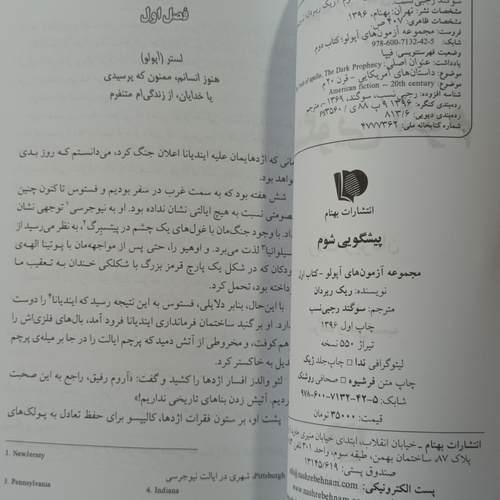 سوگند رجبی‌نسب.
مشخصات نشر: تهران: بهنام، ۱۳۹۶.
مشخصات ظاهری: ۴۰۷ ص.
فروست: مجموعه آزمون‌های آپولو؛ کتاب دوم
شابک: 978-600-7132-42-5
وضعیت فهرستنویسی: فیپا
یادداشت: عنوان اصلی: of apollo, The Dark Prophecy
موضوع: داستان‌های آمریکایی - قرن ۲۰ م.
موضوع: American fiction -- 20th century
شناسه افزوده: رجبی نسب، سوگند، ۱۳۶۹، مترجم
رده‌بندی کنگره: ۱۳۹۶ ۹پ ۸۸ی / PS۳۵۶۰
رده‌بندی دیویی: ۸۱۳/۶
شماره کتابخانه ملی: ۴۷۷۷۳۶۲
انتشارات بهنام
پیشگویی شوم
مجموعه آزمون‌های آپولو - کتاب اول
نویسنده: ریک ریردان
مترجم: سوگند رجبی‌نسب
چاپ اول ۱۳۹۶
تیراژ ۵۵۰ نسخه
لیتوگرافی ندا □ چاپ‌جلد ژیک
چاپ متن فرشیوه □ صحافی روشنک
شابک: ۵-۴۲-۷۱۳۲-۶۰۰-۹۷۸
قیمت: ۳۵۰۰۰ تومان
انتشارات بهنام - خیابان انقلاب، ابتدای خیابان منیری جاوید
پلاک ۸۷، ساختمان بهمن، طبقه سوم، واحد ۳۰۱ تلفن
صندوق پستی: ۱۳۱۴۵/۶۱۹
پست الکترونیکی: @nashrebehnam.com
www.nashrebehnam.com
فصل اول
لستر (آپولو)
هنوز انسانم، ممنون که پرسیدی
یا خدایان، از زندگی‌ام متنفرم
مانی که اژدهایمان علیه ایندیانا اعلان جنگ کرد، می‌دانستم که روز بدی
واهد بود.
شش هفته بود که به سمت غرب در سفر بودیم و فستوس تاکنون چنین
صومتی نسبت به هیچ ایالتی نشان نداده بود. او به نیوجرسی¹ توجهی نشان
داد. با وجود جنگ‌مان با غول‌های یک چشم در پیتسبرگ²، به نظر می‌رسید از
سیلوانیا³ لذت می‌برد. و اوهیو را، حتی پس از مواجهه‌مان با پوتینا الهه‌ی
ودکان که در شکل یک پارچ قرمز بزرگ با شکلکی خندان به تعقیب ما
داخته بود، تحمل کرد.
با این‌حال، بنابر دلایلی، فستوس به این نتیجه رسید که ایندیانا⁴ را دوست
دارد. او بر گنبد ساختمان فرمانداری ایندیانا فرود آمد، بال‌های فلزی‌اش را
هم کوفت، و مخروطی از آتش دمید که پرچم ایالت را در جا بر میله‌ی پرچم
دیل به خاکستر کرد.
لئو والدز افسار اژدها را کشید و گفت: «آروم رفیق، راجع به این صحبت
ردیم. آتیش زدن بناهای تاریخی نداریم!»
پشت او، بر ستون فقرات اژدها، کالیپسو برای حفظ تعادل به پولک‌های
1. NewJersey
Pittsburgh شهری در ایالت نیوجرسی
3. Pennsylvania
4. Indiana